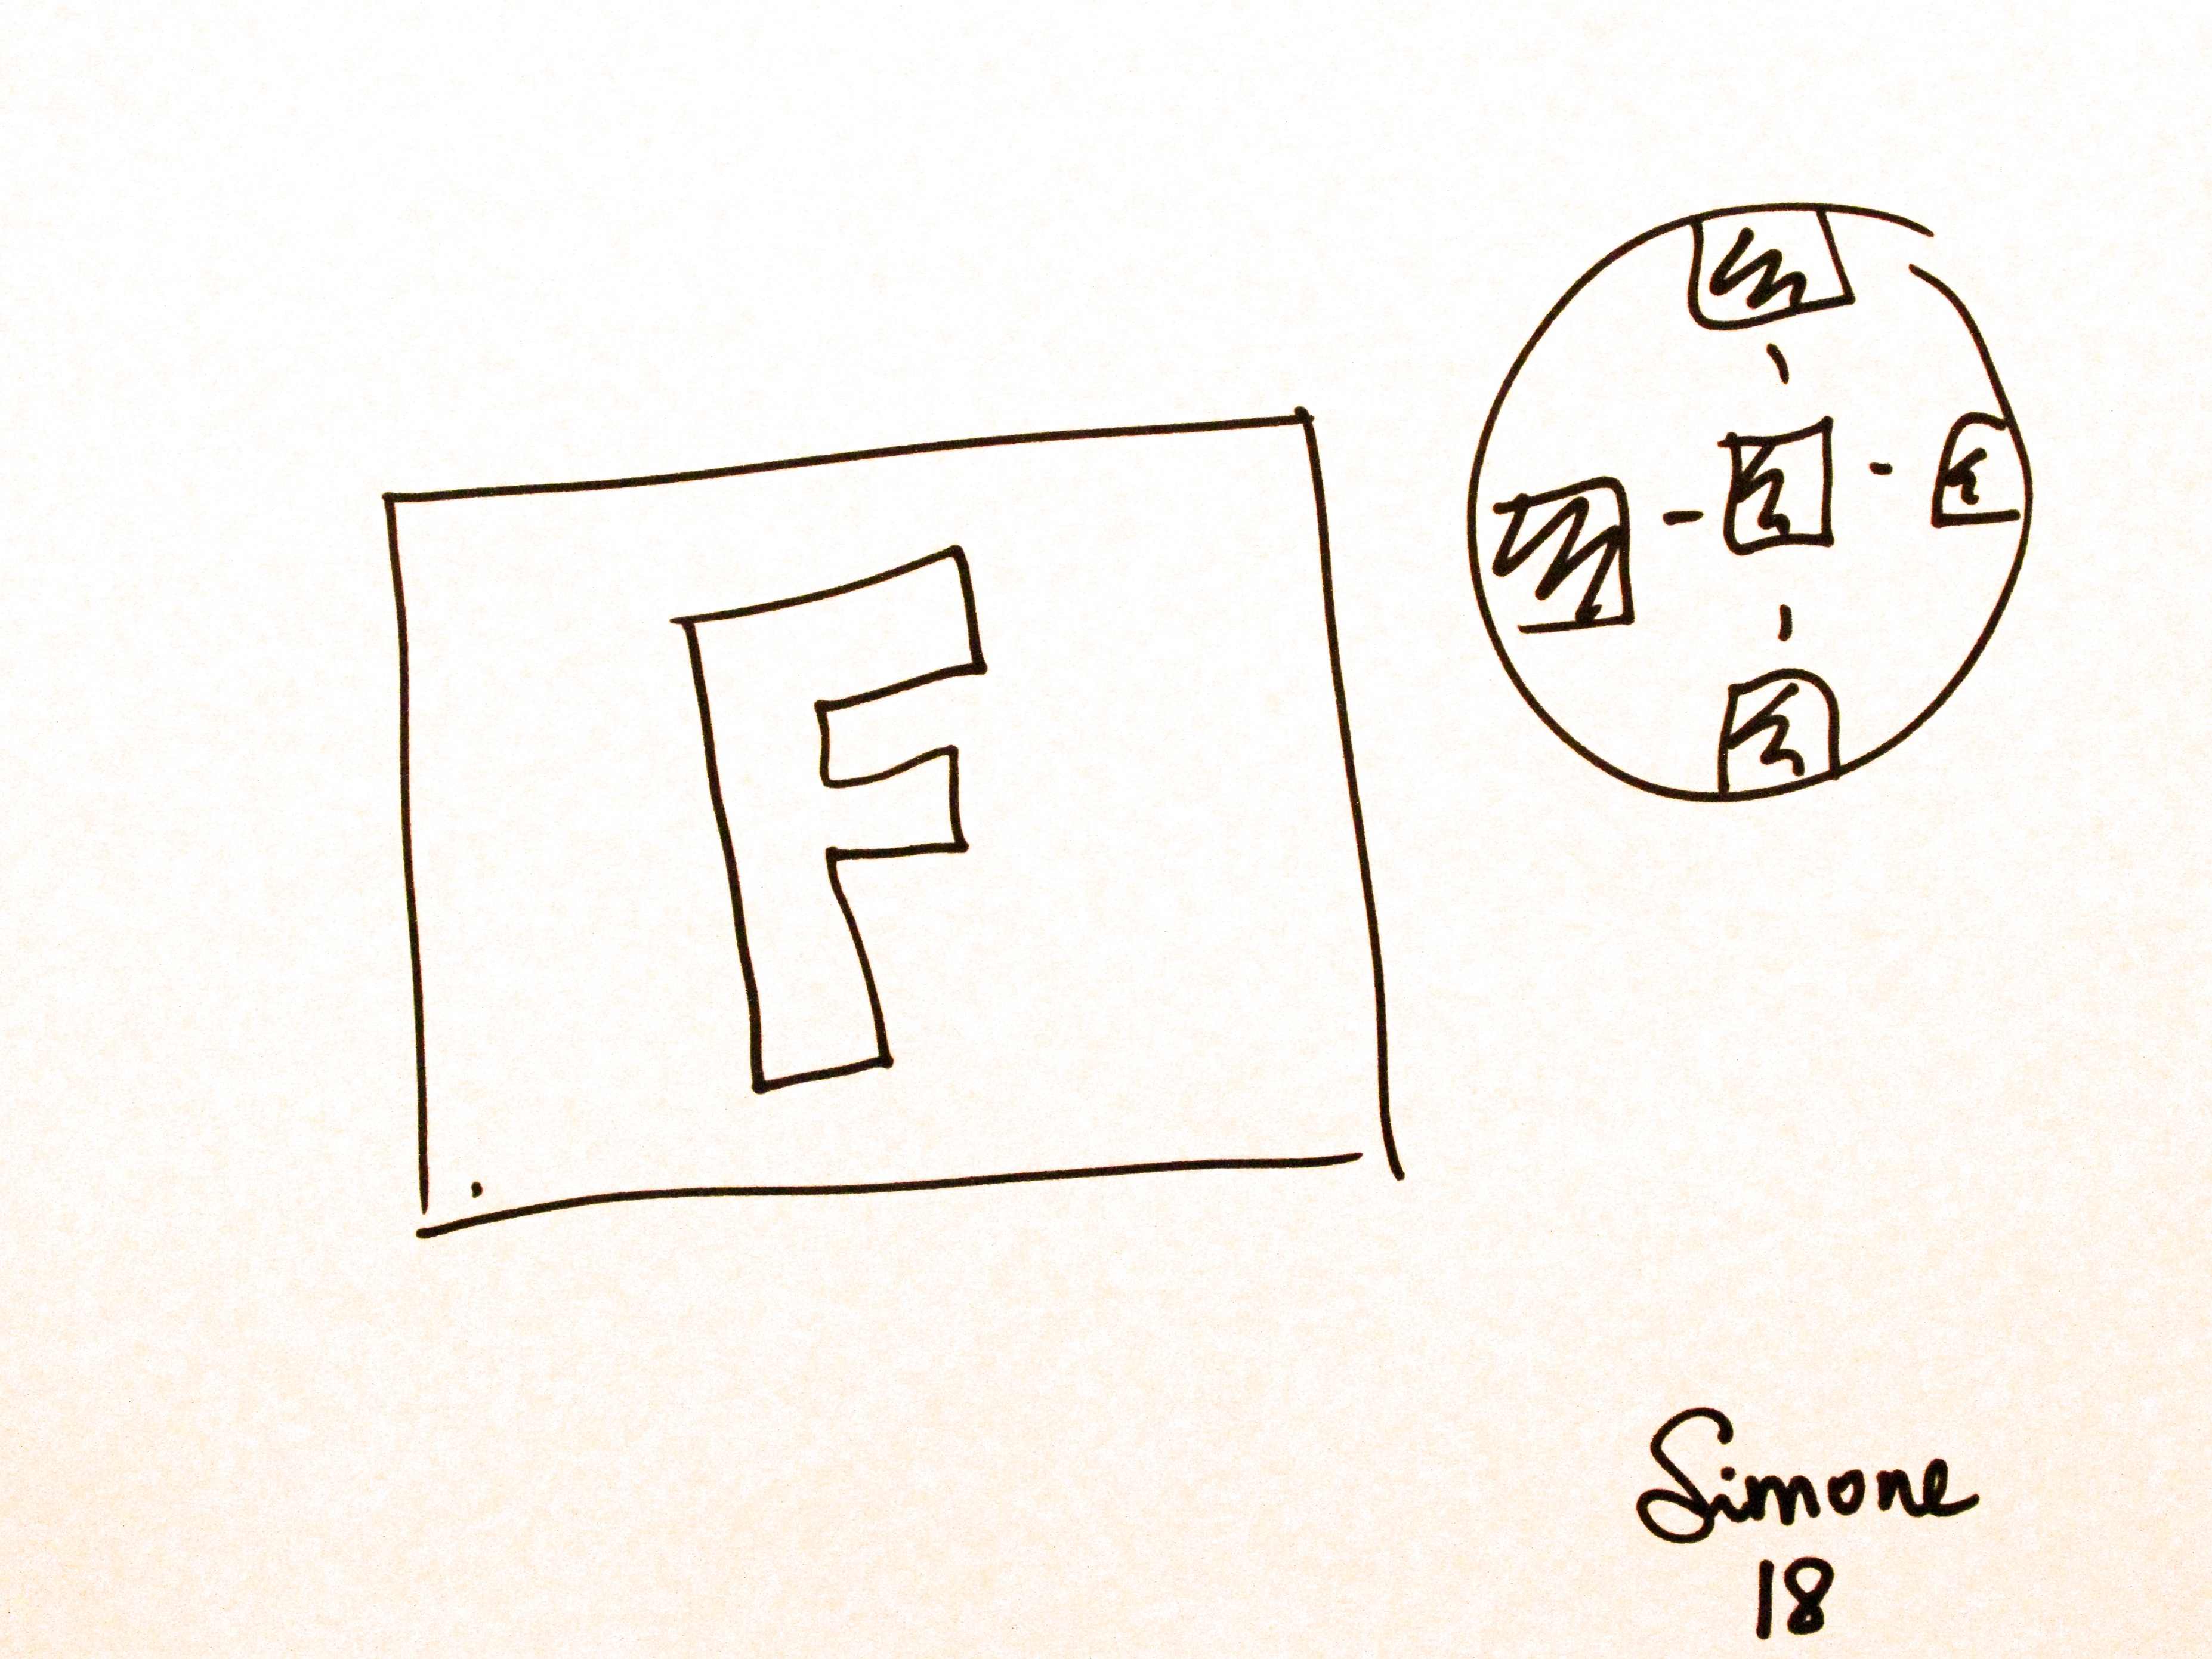 F
Simone
18